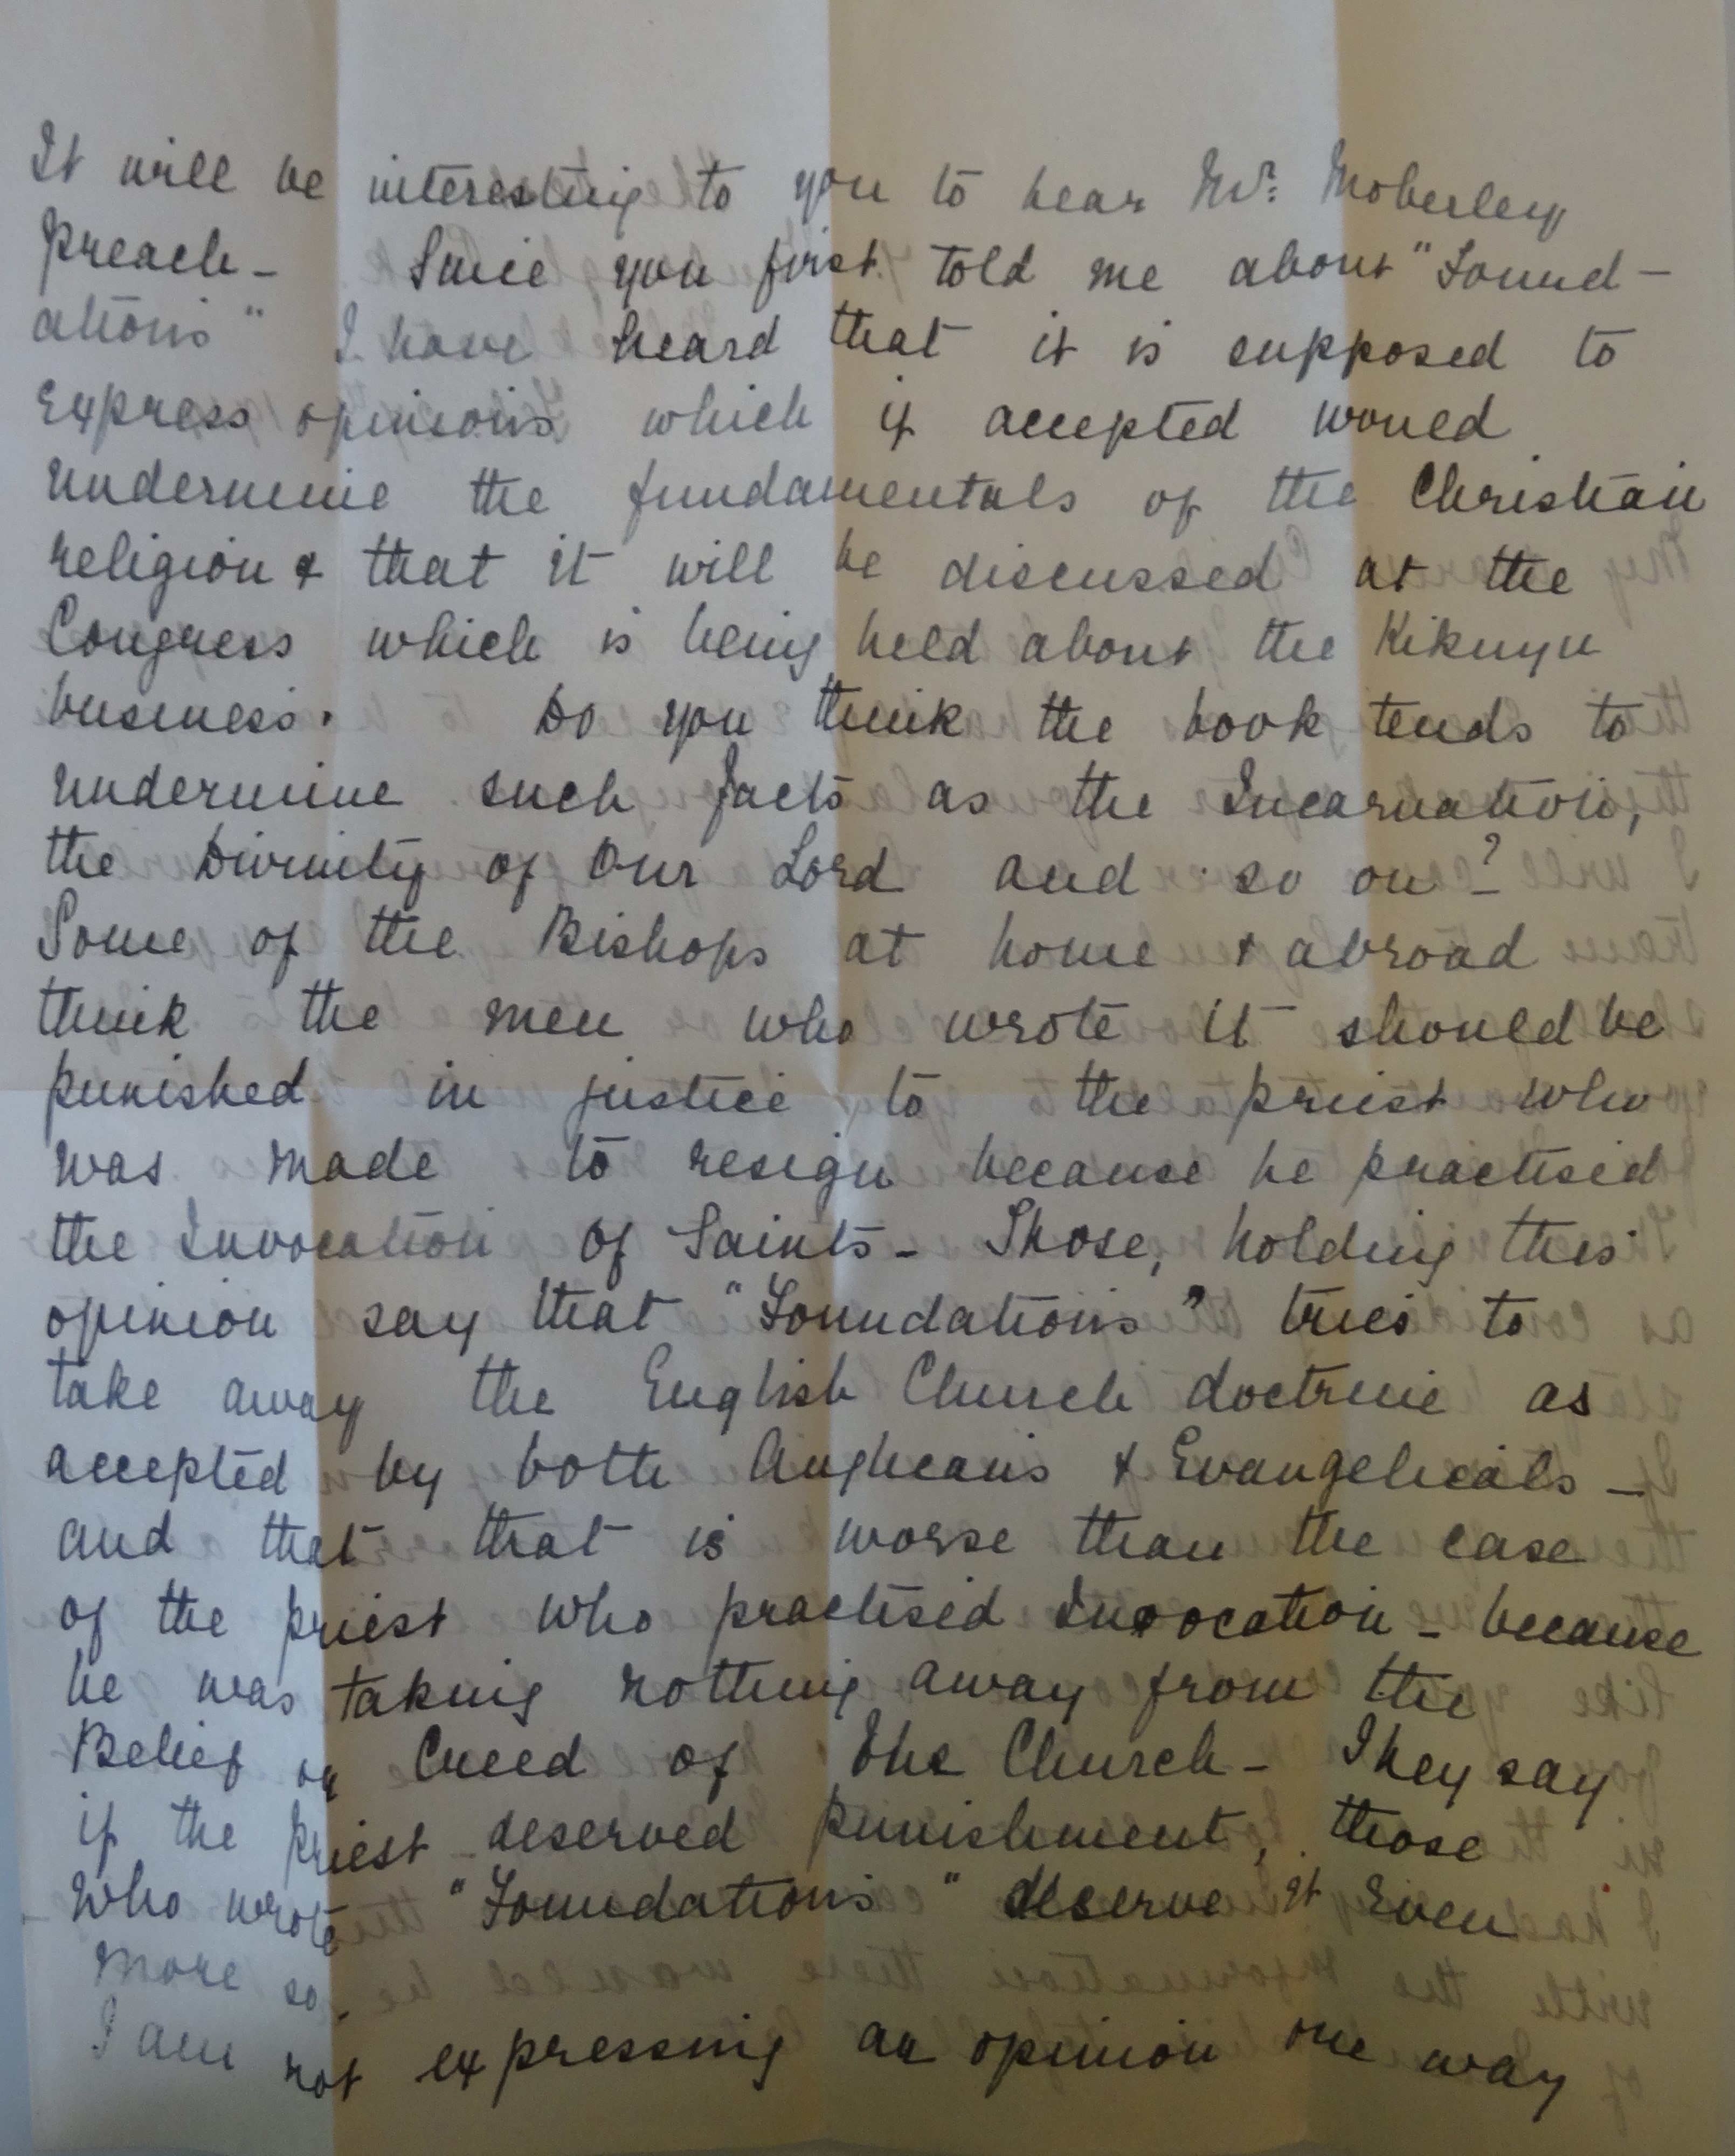 It will be interesting to you to hear Mr. Moberley
preach - Since you first told me about "Found-
ations" I have heard that it is supposed to
express opinions which if accepted would
undermine the fundamentals of the Christian
religion & that it will be discussed at the
Congress which is being held about the Kikuyu
business. Do you think the book tends to
undermine such facts as the Incarnation,
the Divinity of Our Lord and so on?
Some of the Bishops at home & abroad
think the men who wrote it should be
punished in justice to the priest who
was made to resign because he practised
the Invocation of Saints - Those, holding this
opinion say that "Foundations" tries to
take away the English Church doctrine as
accepted by both Anglicans & Evangelicals -
and that that is worse than the case
of the priest who practised Invocation - because
he was taking nothing away from the
Belief or Creed of the Church - They say
if the priest deserved punishment, those
who wrote "Foundations" deserve it even
more so.
I am not expressing an opinion one way